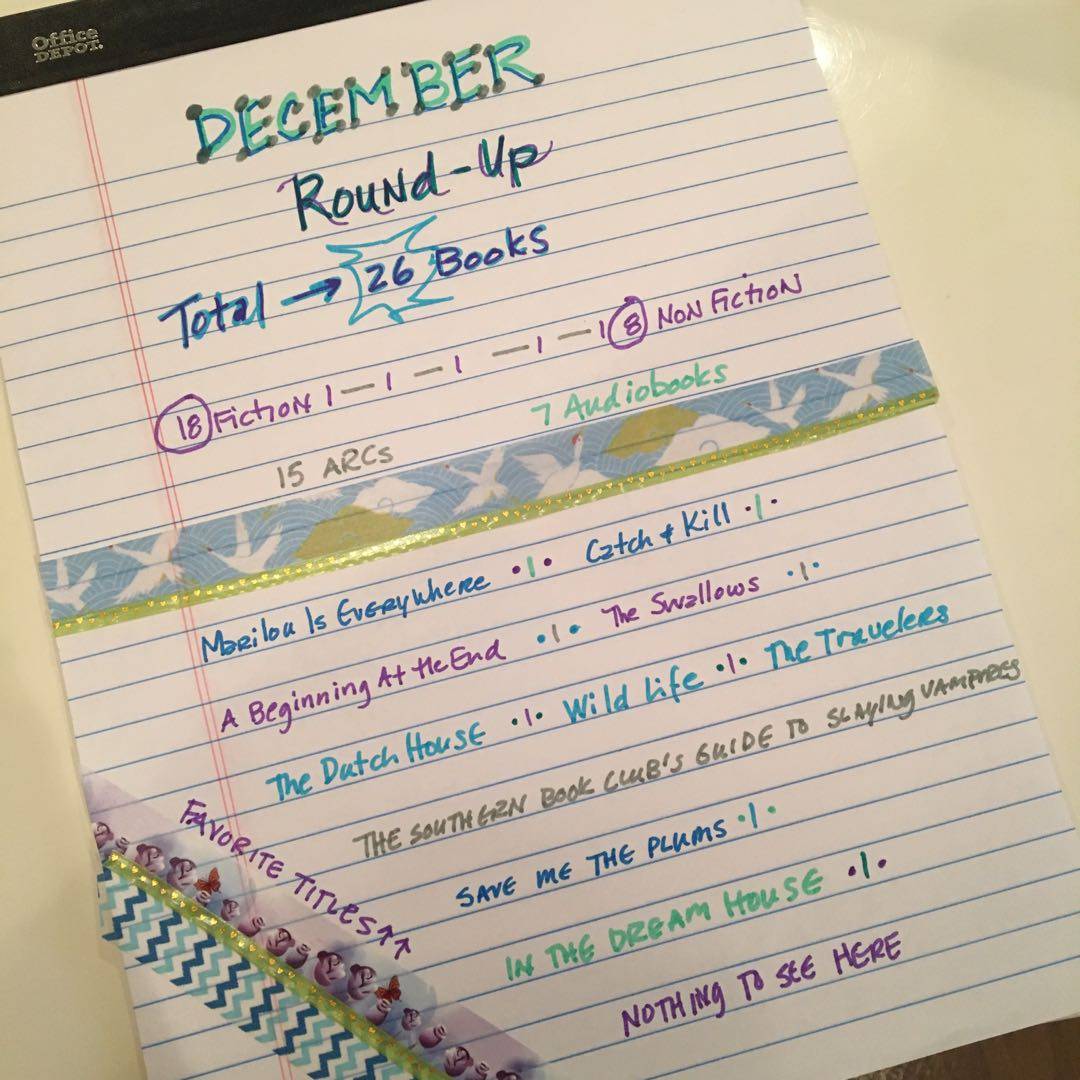 Office
DEPOT.
DECEMBER
Round-Up
Total → 26 Books
18 Fiction 1 — 1 — 1 — 1 — 1 8 Non Fiction
15 ARCs 7 Audiobooks
Marilou Is Everywhere • 1 • Catch + Kill • 1 •
A Beginning At the End • 1 • The Swallows • 1 •
The Dutch House • 1 • Wild Life • 1 • The Travelers
THE SOUTHERN BOOK CLUB'S GUIDE TO SLAYING VAMPIRES
SAVE ME THE PLUMS • 1 •
IN THE DREAM HOUSE • 1 •
NOTHING TO SEE HERE
FAVORITE TITLES ↑↑